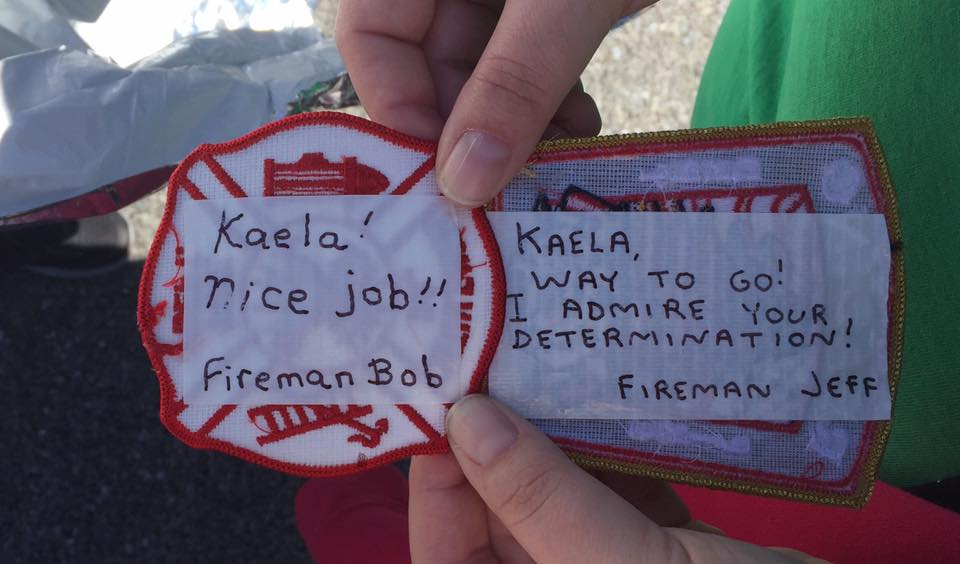 Kaela!
nice job!!
Fireman Bob
KAELA,
WAY TO GO!
I ADMIRE YOUR
DETERMINATION!
FIREMAN JEFF